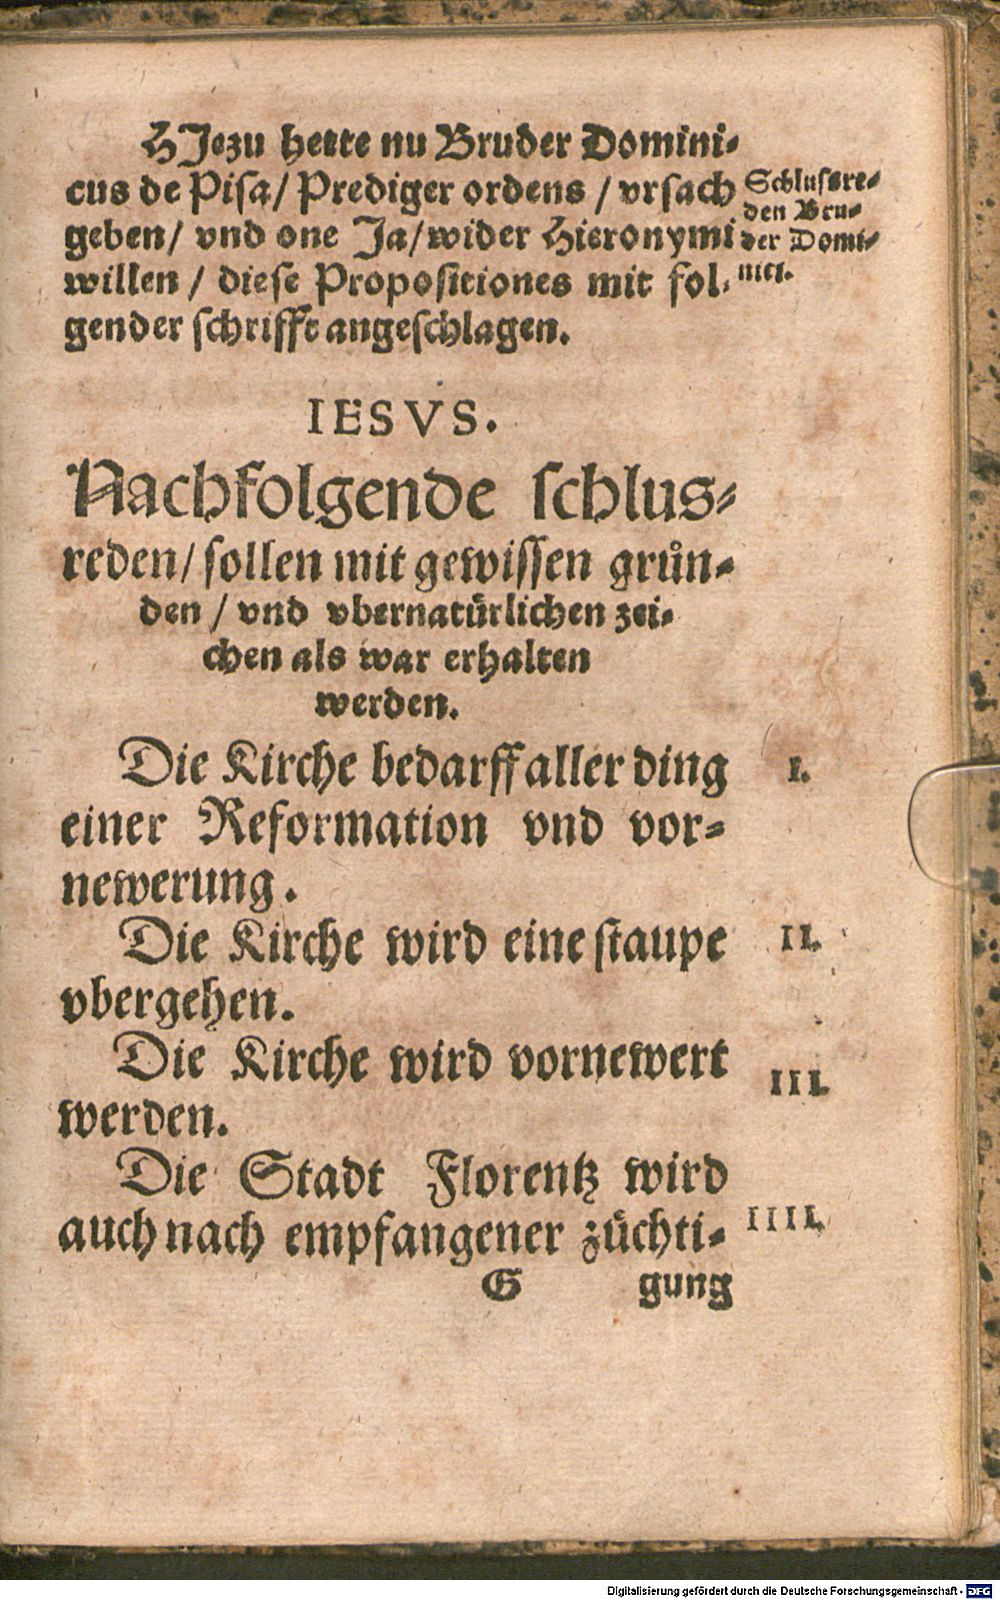 HJezu hette nu Bruder Domini-
cus de Pisa/ Prediger ordens / vrsach
geben/ vnd one Ja/ wider Hieronymi
willen / diese Propositiones mit fol-
gender schrifft angeschlagen.
Schlusre-
den Bru-
der Domi-
nici.
IESVS.
Nachfolgende schlus-
reden/ sollen mit gewissen gruͤn-
den / vnd vbernatuͤrlichen zei-
chen als war erhalten
werden.
Die Kirche bedarff aller ding
einer Reformation vnd vor-
newerung.
I.
Die Kirche wird eine staupe
vbergehen.
II.
Die Kirche wird vornewert
werden.
III.
Die Stadt Florentz wird
auch nach empfangener zuͤchti-
IIII.
G gung
Digitalisierung gefördert durch die Deutsche Forschungsgemeinschaft - DFG